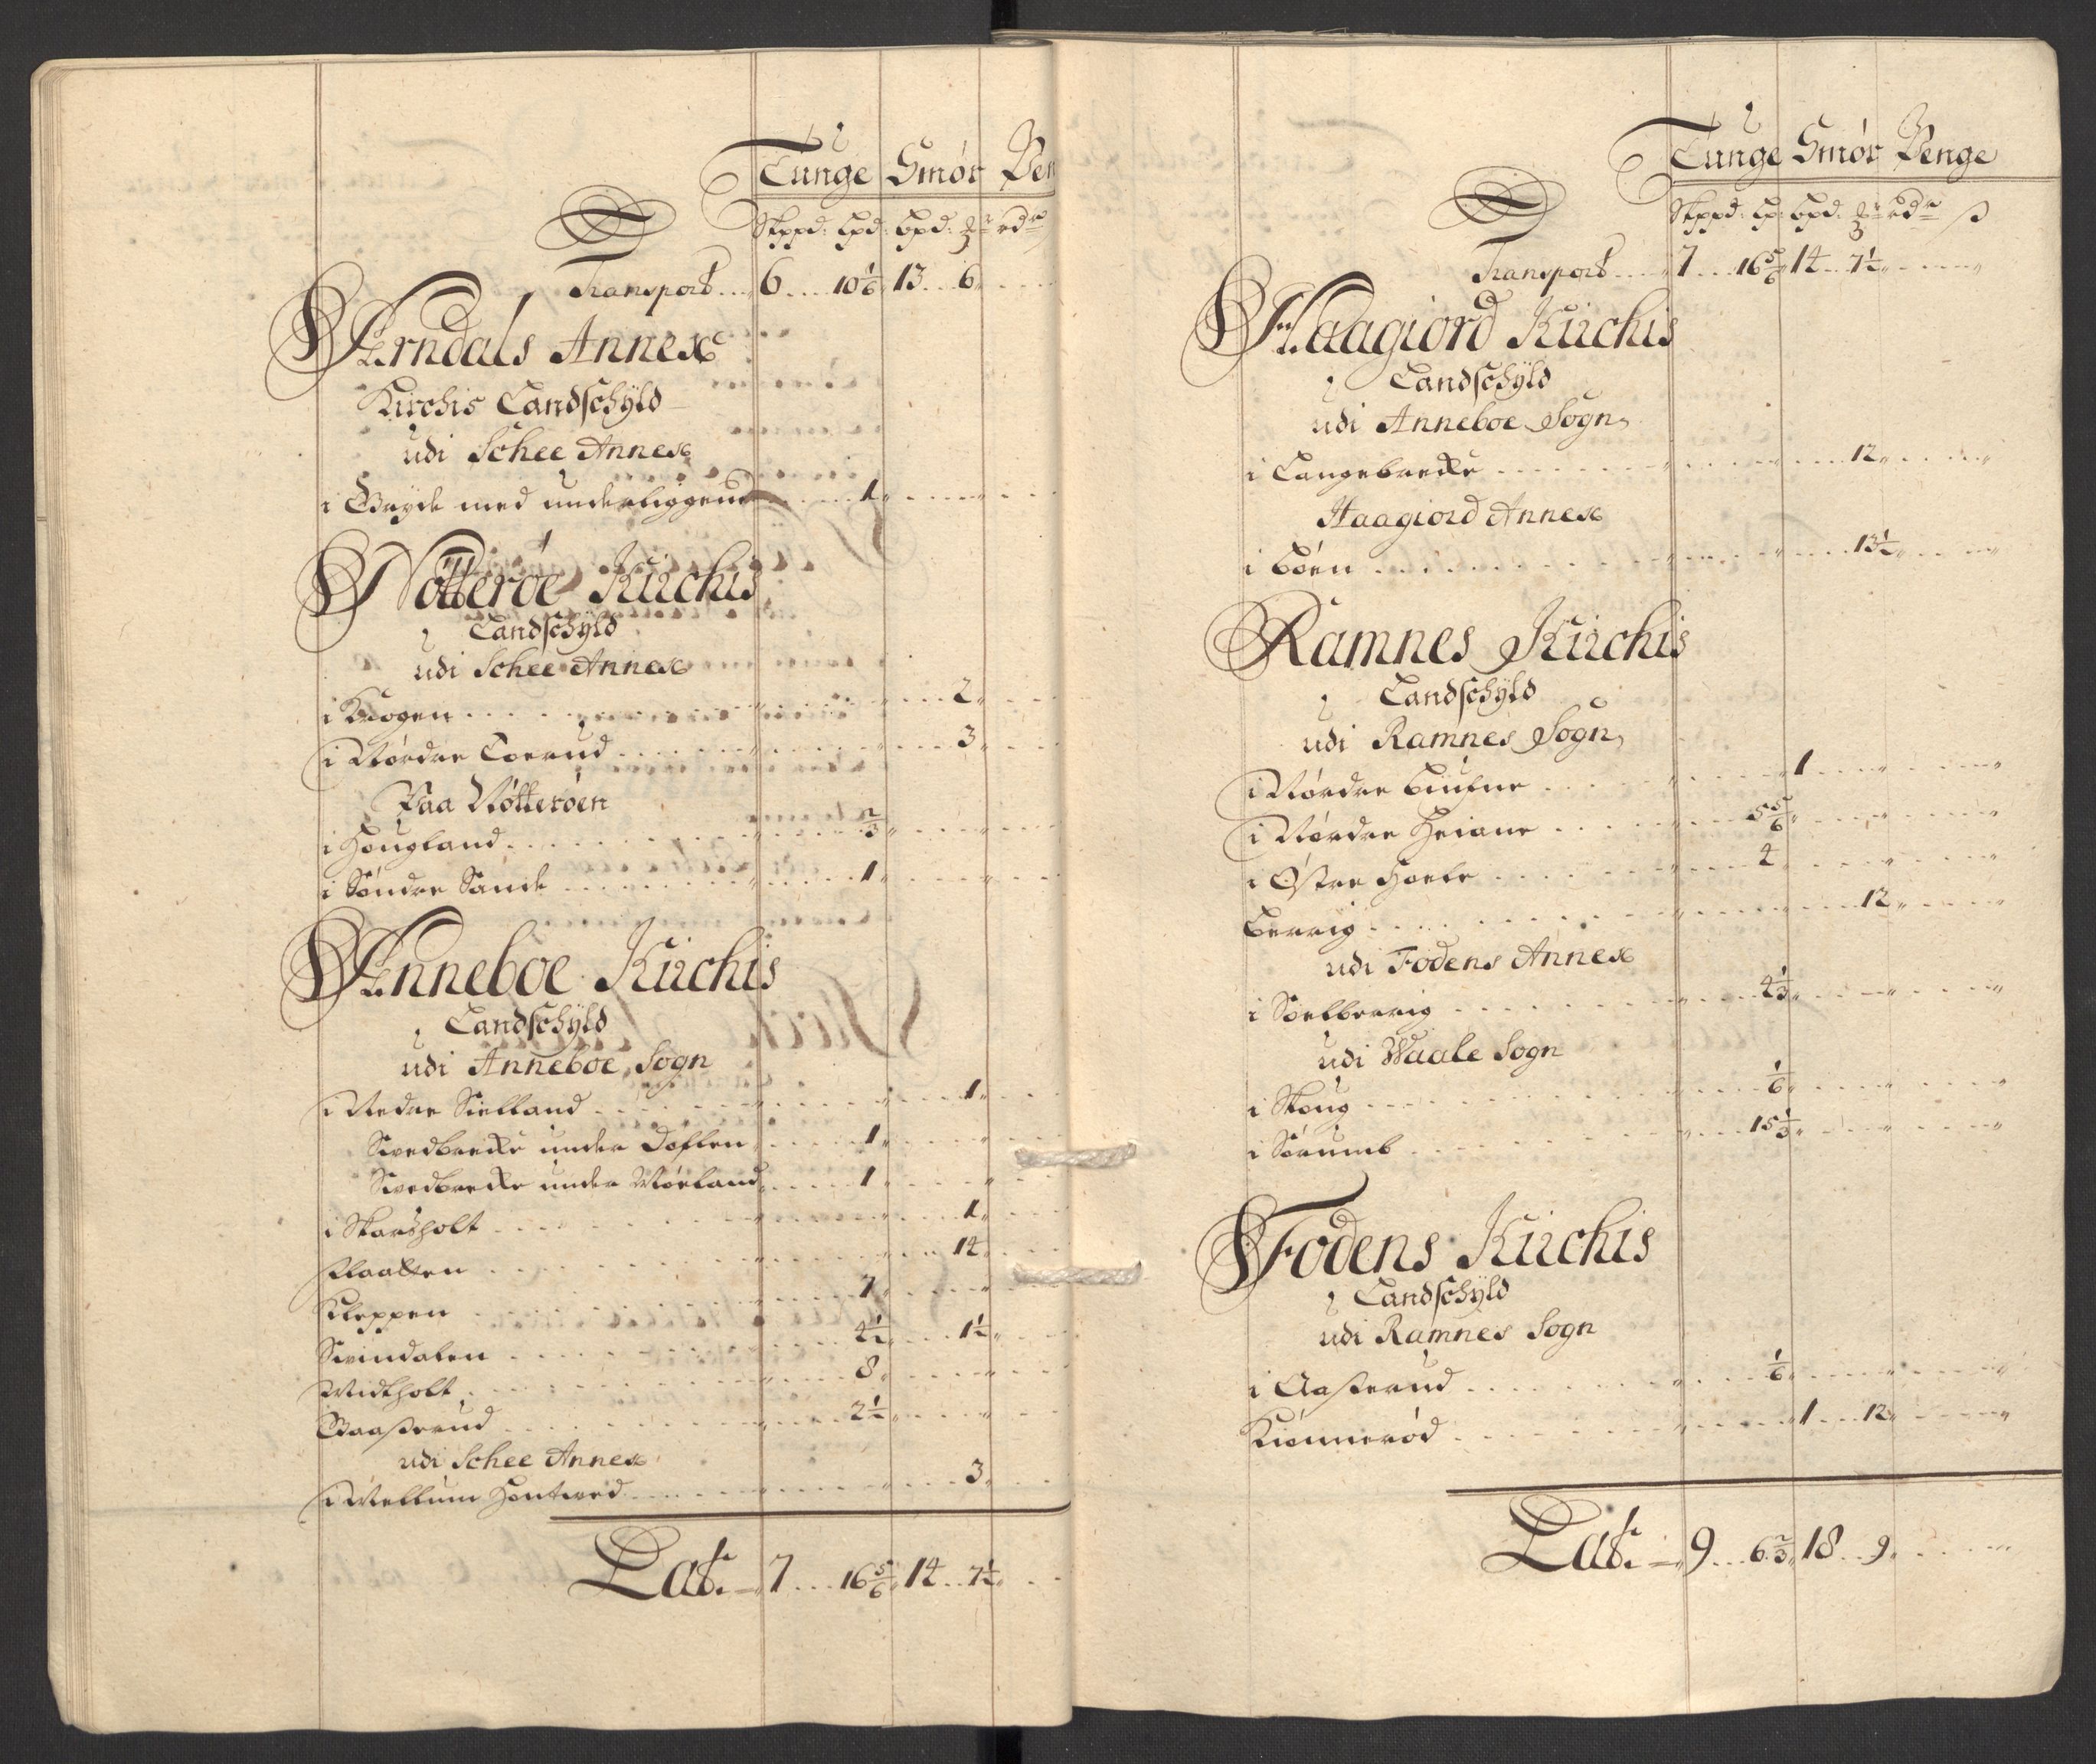 Tunge Smör Pen
Skppd: Lpd: Bpd: rdr
Transport 6 10 1/6 13 6
Arndals Annex
Kirchis Landschÿld
udi Schee Annex
i Grÿde med underliggende 1
Nötteröe Kirchis
Landschÿld
udi Schee Annex
i Krogen 2
i Nördre Toerud 3
Paa Nötteröen
i Hougland 2/3
i Söndre Sande 1
Anneboe Kirchis
Landschÿld
udi Anneboe Sogn
i Nedre Sielland 1
Svedbrecke under Doflen 1
Svedbrecke under Möeland 1
i Skarsholt 1
Flaatten 14
Kleppen 7
Svindalen 4 1/2 1 1/2
Widtholt 8
Baasserud 2 1/2
udi Schee Annex
i Mellum Hontved 3
Lat. 7 16 5/6 14 7 1/2
Tunge Smör Penge
Skppd: Lp: Bpd: rdr ß
Transport 7 16 5/6 14 7 1/2
Haagiord Kirchis
Landschÿld
udi Anneboe Sogn
i Langebrecke 12
Haagiord Annex
i Böen 13 1/2
Ramnes Kirchis
Landschÿld
udi Ramnes Sogn
i Nördre Biufne 1
i Nördre Heiane 5 5/6
i Östre Horte 4
Berrig 12
udi Fodens Annex
i Soelberrig 4 1/3
udi Waale Sogn
i Skoug 1/6
i Sörumb 15 1/3
Fodens Kirchis
Landschÿld
udi Ramnes Sogn
i Aasserud 1/6
Kiönneröd 1 12
Lat. 9 6 2/3 18 9